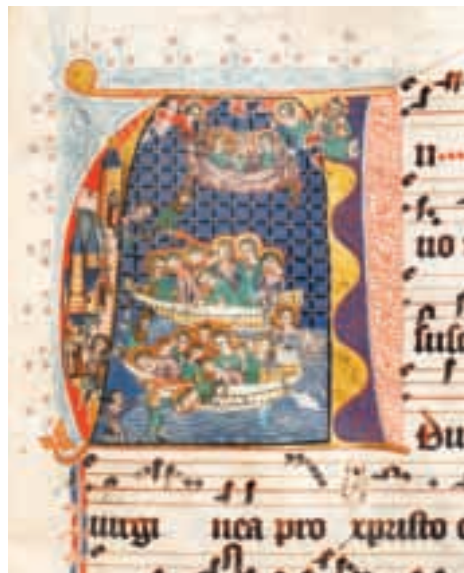 n
uo
ſuſc
Du
uirgi nea pro xpristo